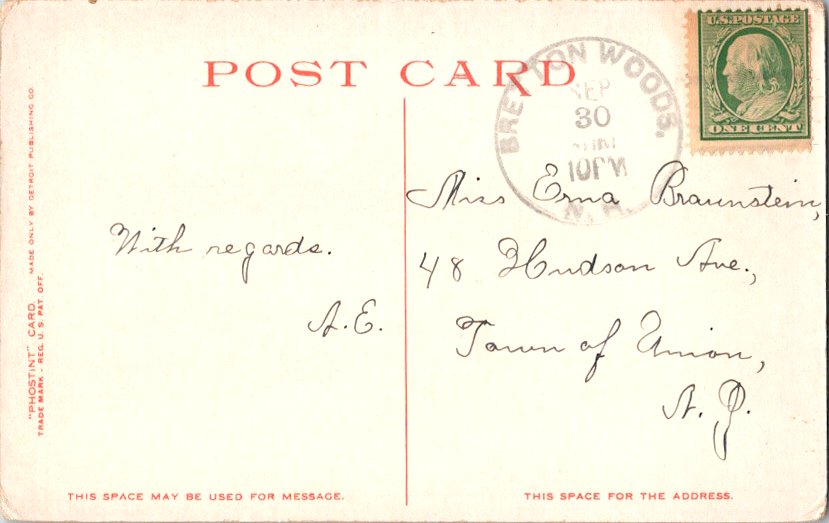 POST CARD
U.S. POSTAGE
ONE CENT
BRETTON WOODS,
SEP
30
10PM
N.H.
Miss Erna Braunstein,
48 Hudson Ave.,
Town of Union,
N. J.
With regards.
A.E.
"PHOSTINT" CARD. MADE ONLY BY DETROIT PUBLISHING CO.
TRADE MARK - REG. U. S. PAT. OFF.
THIS SPACE MAY BE USED FOR MESSAGE.
THIS SPACE FOR THE ADDRESS.